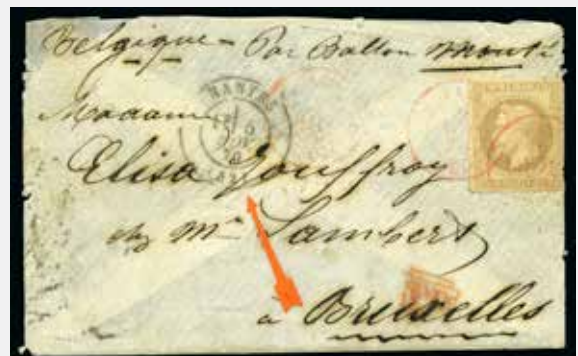 Belgique - Par Ballon Monté
Madame
Elisa Jouffroy
chez Mr Lambert
à Bruxelles
NANTES